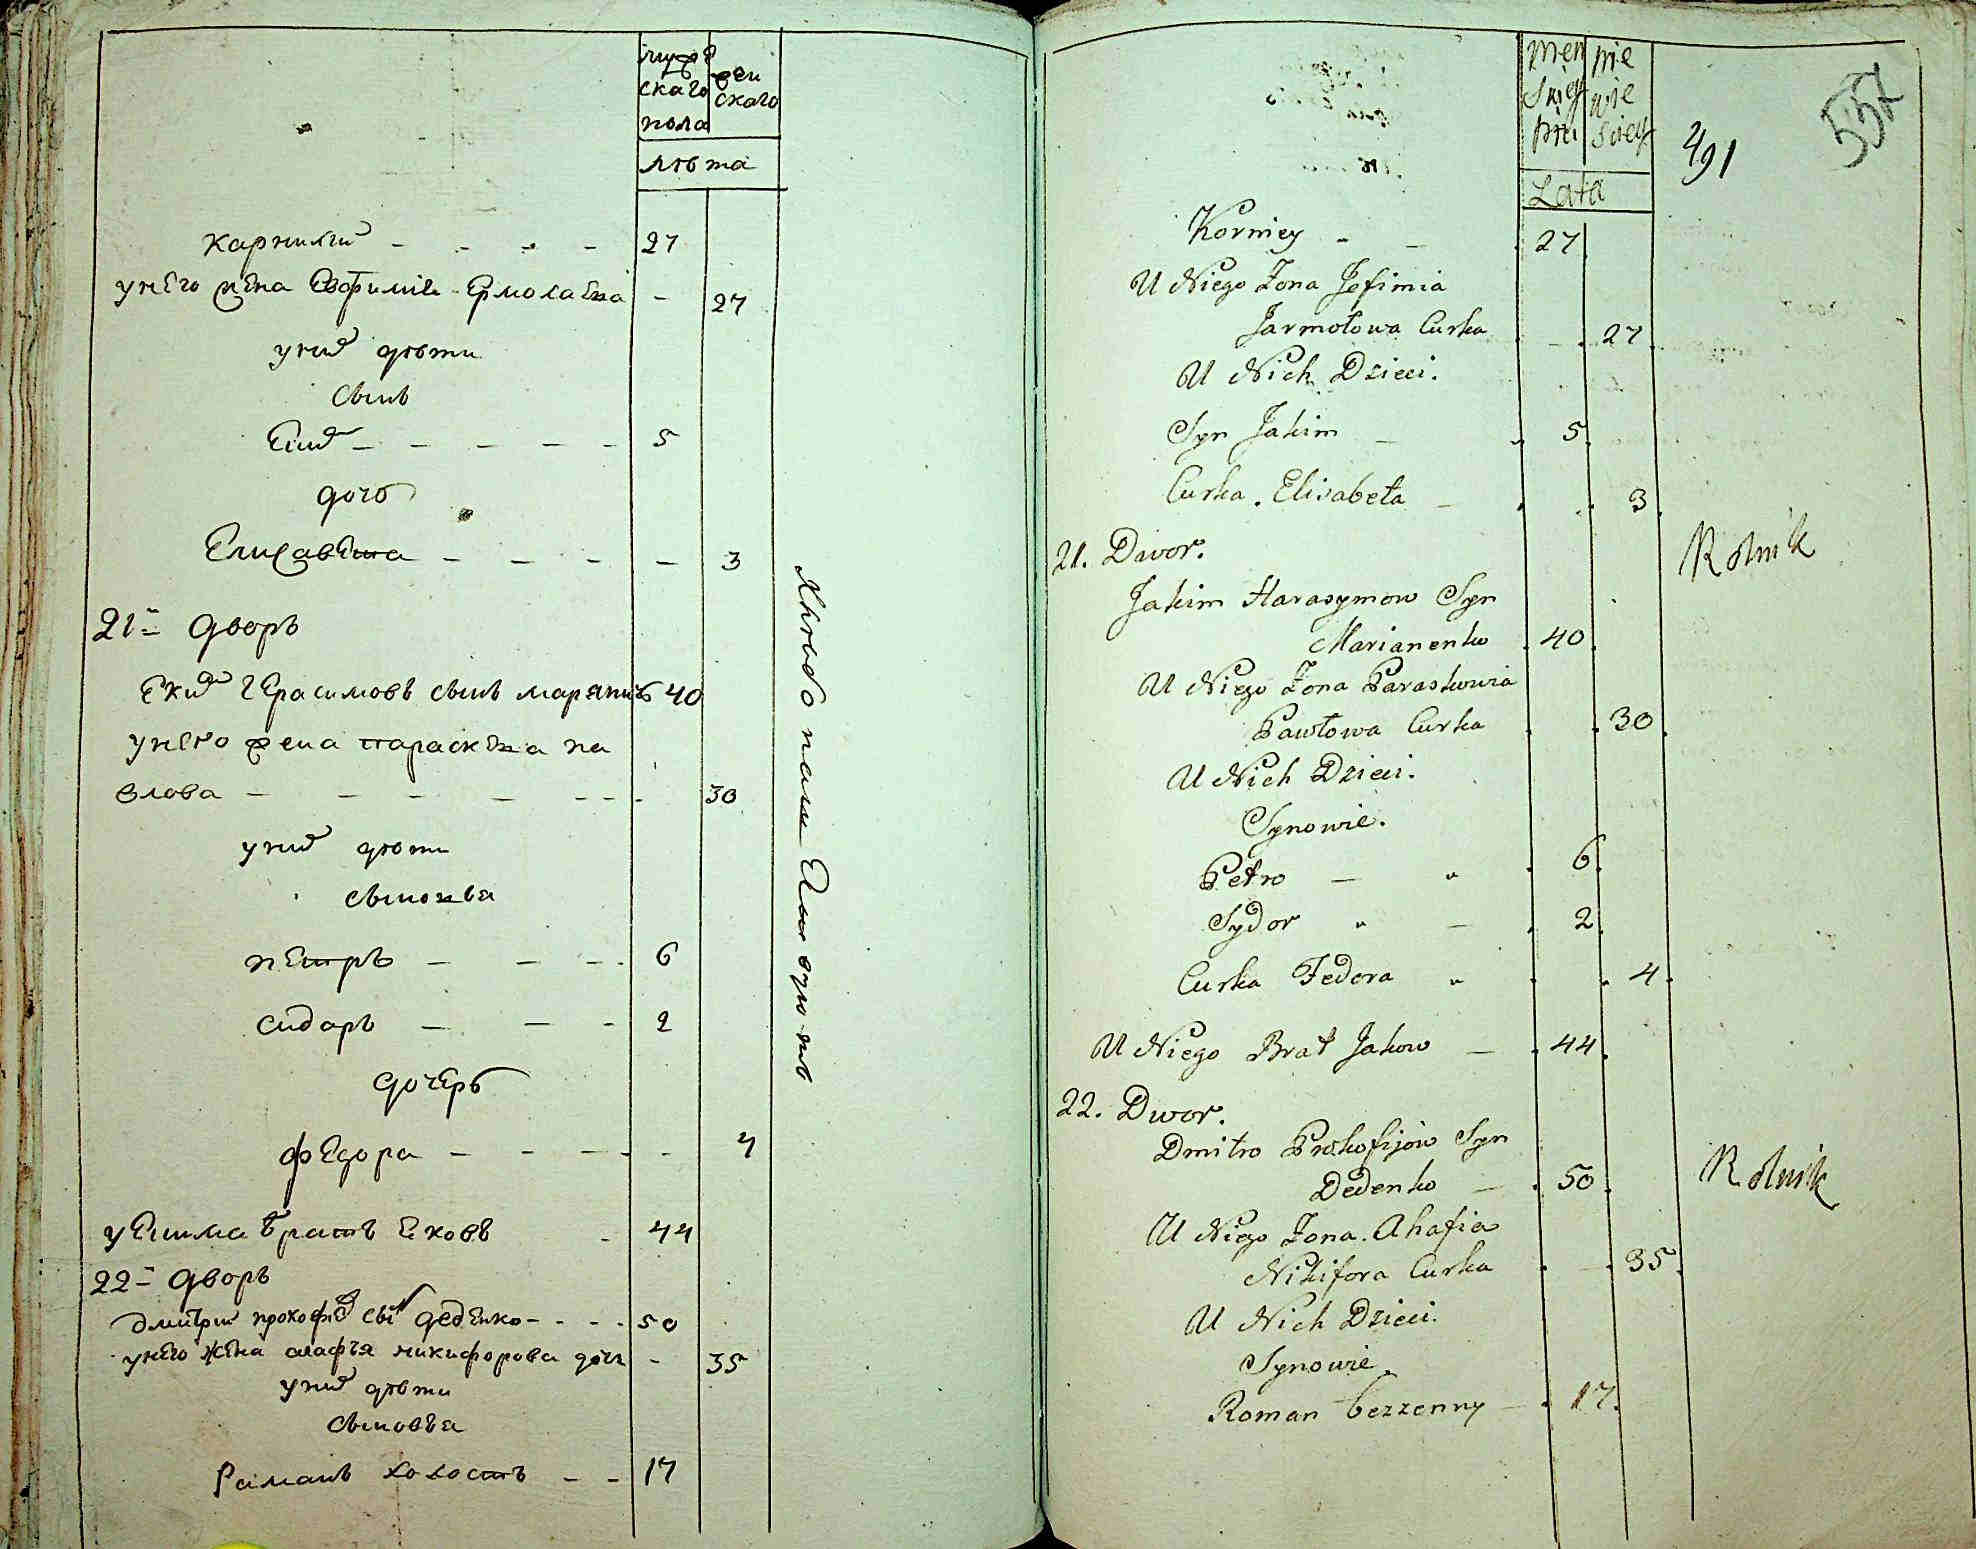 мужескаго пола
женскаго
лѣта
карнилий - - - - 27
у него жена Евфимия Ермолаева - 27
у них дѣти
сынъ
Еким - - - - - 5
дочь
Елисавета - - - - - 3
21й дворъ
Еким Герасимовъ сынъ марянич 40
у него жена параскева па
влова - - - - - - - 30
у них дѣти
сыновья
петръ - - - - 6
сидаръ - - - 2
дочерь
федора - - - - - 4
у Екима братъ Ековъ - 44
22й дворъ
дмитрий прокофиев сынъ деденко - - - - 50
у него жена агафья никифорова дочь - 35
у них дѣти
сыновья
Раманъ холостъ - - 17
męn
skiey
płci
nie
wie
sciey
Lata
491
557
Korniey - - 27
U Niego Zona Jefimia
Jarmołowa Curka - 27
U Nich Dzieci.
Syn Jakim - 5
Curka. Elisabeta - 3
21. Dwor.
Rolnik
Jakim Harasymow Syn
Marianenko 40
U Niego Zona Paraskowia
Pawłowa Curka 30
U Nich Dzieci.
Synowie.
Petro - " 6
Sydor " - 2
Curka Fedora " 4
U Niego Brat Jakow - 44
22. Dwor.
Dmitro Prokofijow Syn
Rolnik
Dedenko - 50
U Niego Zona. Ahafia
Nikifora Curka - 35
U Nich Dzieci.
Synowie
Roman bezzenny - 17